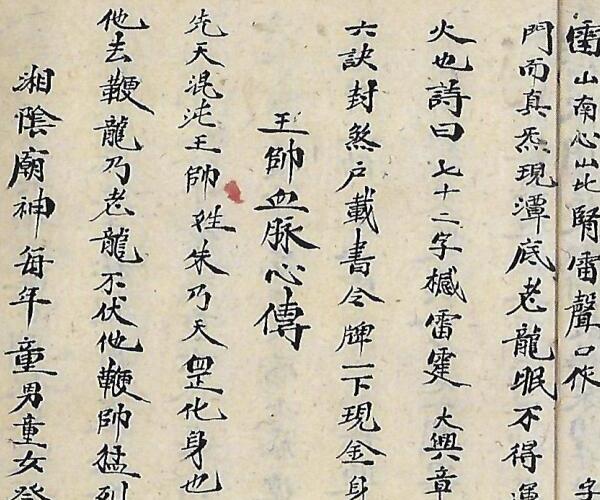 雷山南心山北腎雷聲口作字
門而真炁現潭底老龍眠不得運
火也詩曰七十二字撼雷霆大興章
六訣封煞戶載書令牌一下現金身
王帥血脉心傳
先天混沌王帥姓朱乃天罡化身也
他去鞭龍乃老龍不伏他鞭帥猛烈
湘陰廟神每年童男童女祭